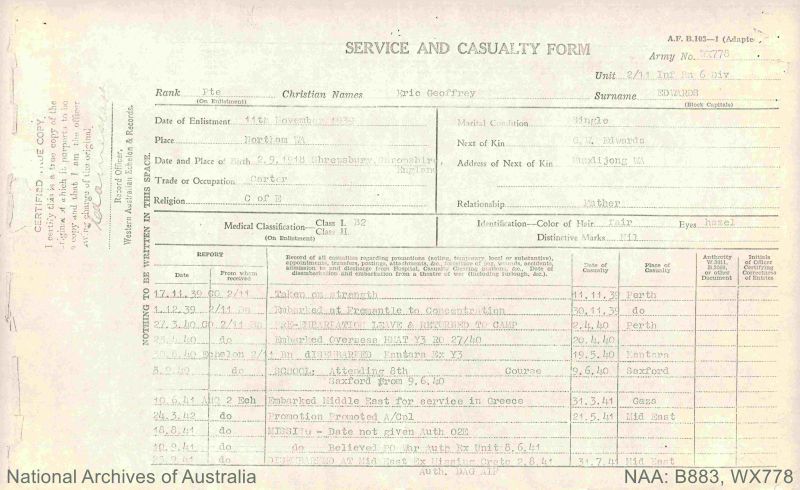 A.F. B.103—1 (Adapte
SERVICE AND CASUALTY FORM
Army No. WX778
Unit 2/11 Inf Bn 6 Div
Rank Pte Christian Names Eric Geoffrey Surname EDWARDS
(On Enlistment) (Block Capitals)
Date of Enlistment 11th November 1939
Place Northam WA
Date and Place of Birth 2.9.1918 Shrewsbury,
England
Trade or Occupation Carter
Religion C of E
Marital Condition Single
Next of Kin Edwards
Address of Next of Kin WA
Relationship Father
Medical Classification— Class I. B2
Class II.
(On Enlistment)
Identification—Color of Hair fair Eyes hazel
Distinctive Marks Nil
CERTIFIED TRUE COPY.
I certify this is a true copy of the
original which it purports to be
a copy and that I am the officer
having charge of the original.
Record Officer,
Western Australian Echelon & Records.
NOTHING TO BE WRITTEN IN THIS SPACE.
REPORT
Date
From whom received
Record of all casualties regarding promotions (acting, temporary, local or substantive),
appointments, transfers, postings, attachments, &c., forfeiture of pay, wounds, accidents,
admission to and discharge from Hospital, Casualty Clearing Stations, &c. Date of
disembarkation and embarkation from a theatre of war (including furlough, &c.).
Date of Casualty
Place of Casualty
Authority W.3011, B.2069, or other Document
Initials of Officer Certifying Correctness of Entries
17.11.39 CO 2/11 Taken on strength 11.11.39 Perth
1.12.39 2/11 Bn Embarked at Fremantle to Concentration 30.11.39 do
27.3.40 CO 2/11 Bn PRE-EMBARKATION LEAVE & RETURNED TO CAMP 2.4.40 Perth
23.4.40 do Embarked Overseas HMAT Y3 RO 27/40 20.4.40
30.6.40 Echelon 2/11 Bn DISEMBARKED Kantara Ex Y3 19.5.40 Kantara
8.9.40 do SCHOOL: Attending 8th Course 9.6.40 Saxford
Saxford from 9.6.40
10.6.41 2 Ech Embarked Middle East for service in Greece 31.3.41 Gaza
24.3.42 do Promotion Promoted A/Cpl 21.5.41 Mid East
18.8.41 do MISSING - Date not given Auth 02E
10.9.41 do do Believed PO War Auth Ex Unit 8.6.41
do DISEMBARKED AT Mid East Ex Missing Crete 2.8.41 31.7.41 Mid East
Auth. DAG AIF
National Archives of Australia
NAA: B883, WX778